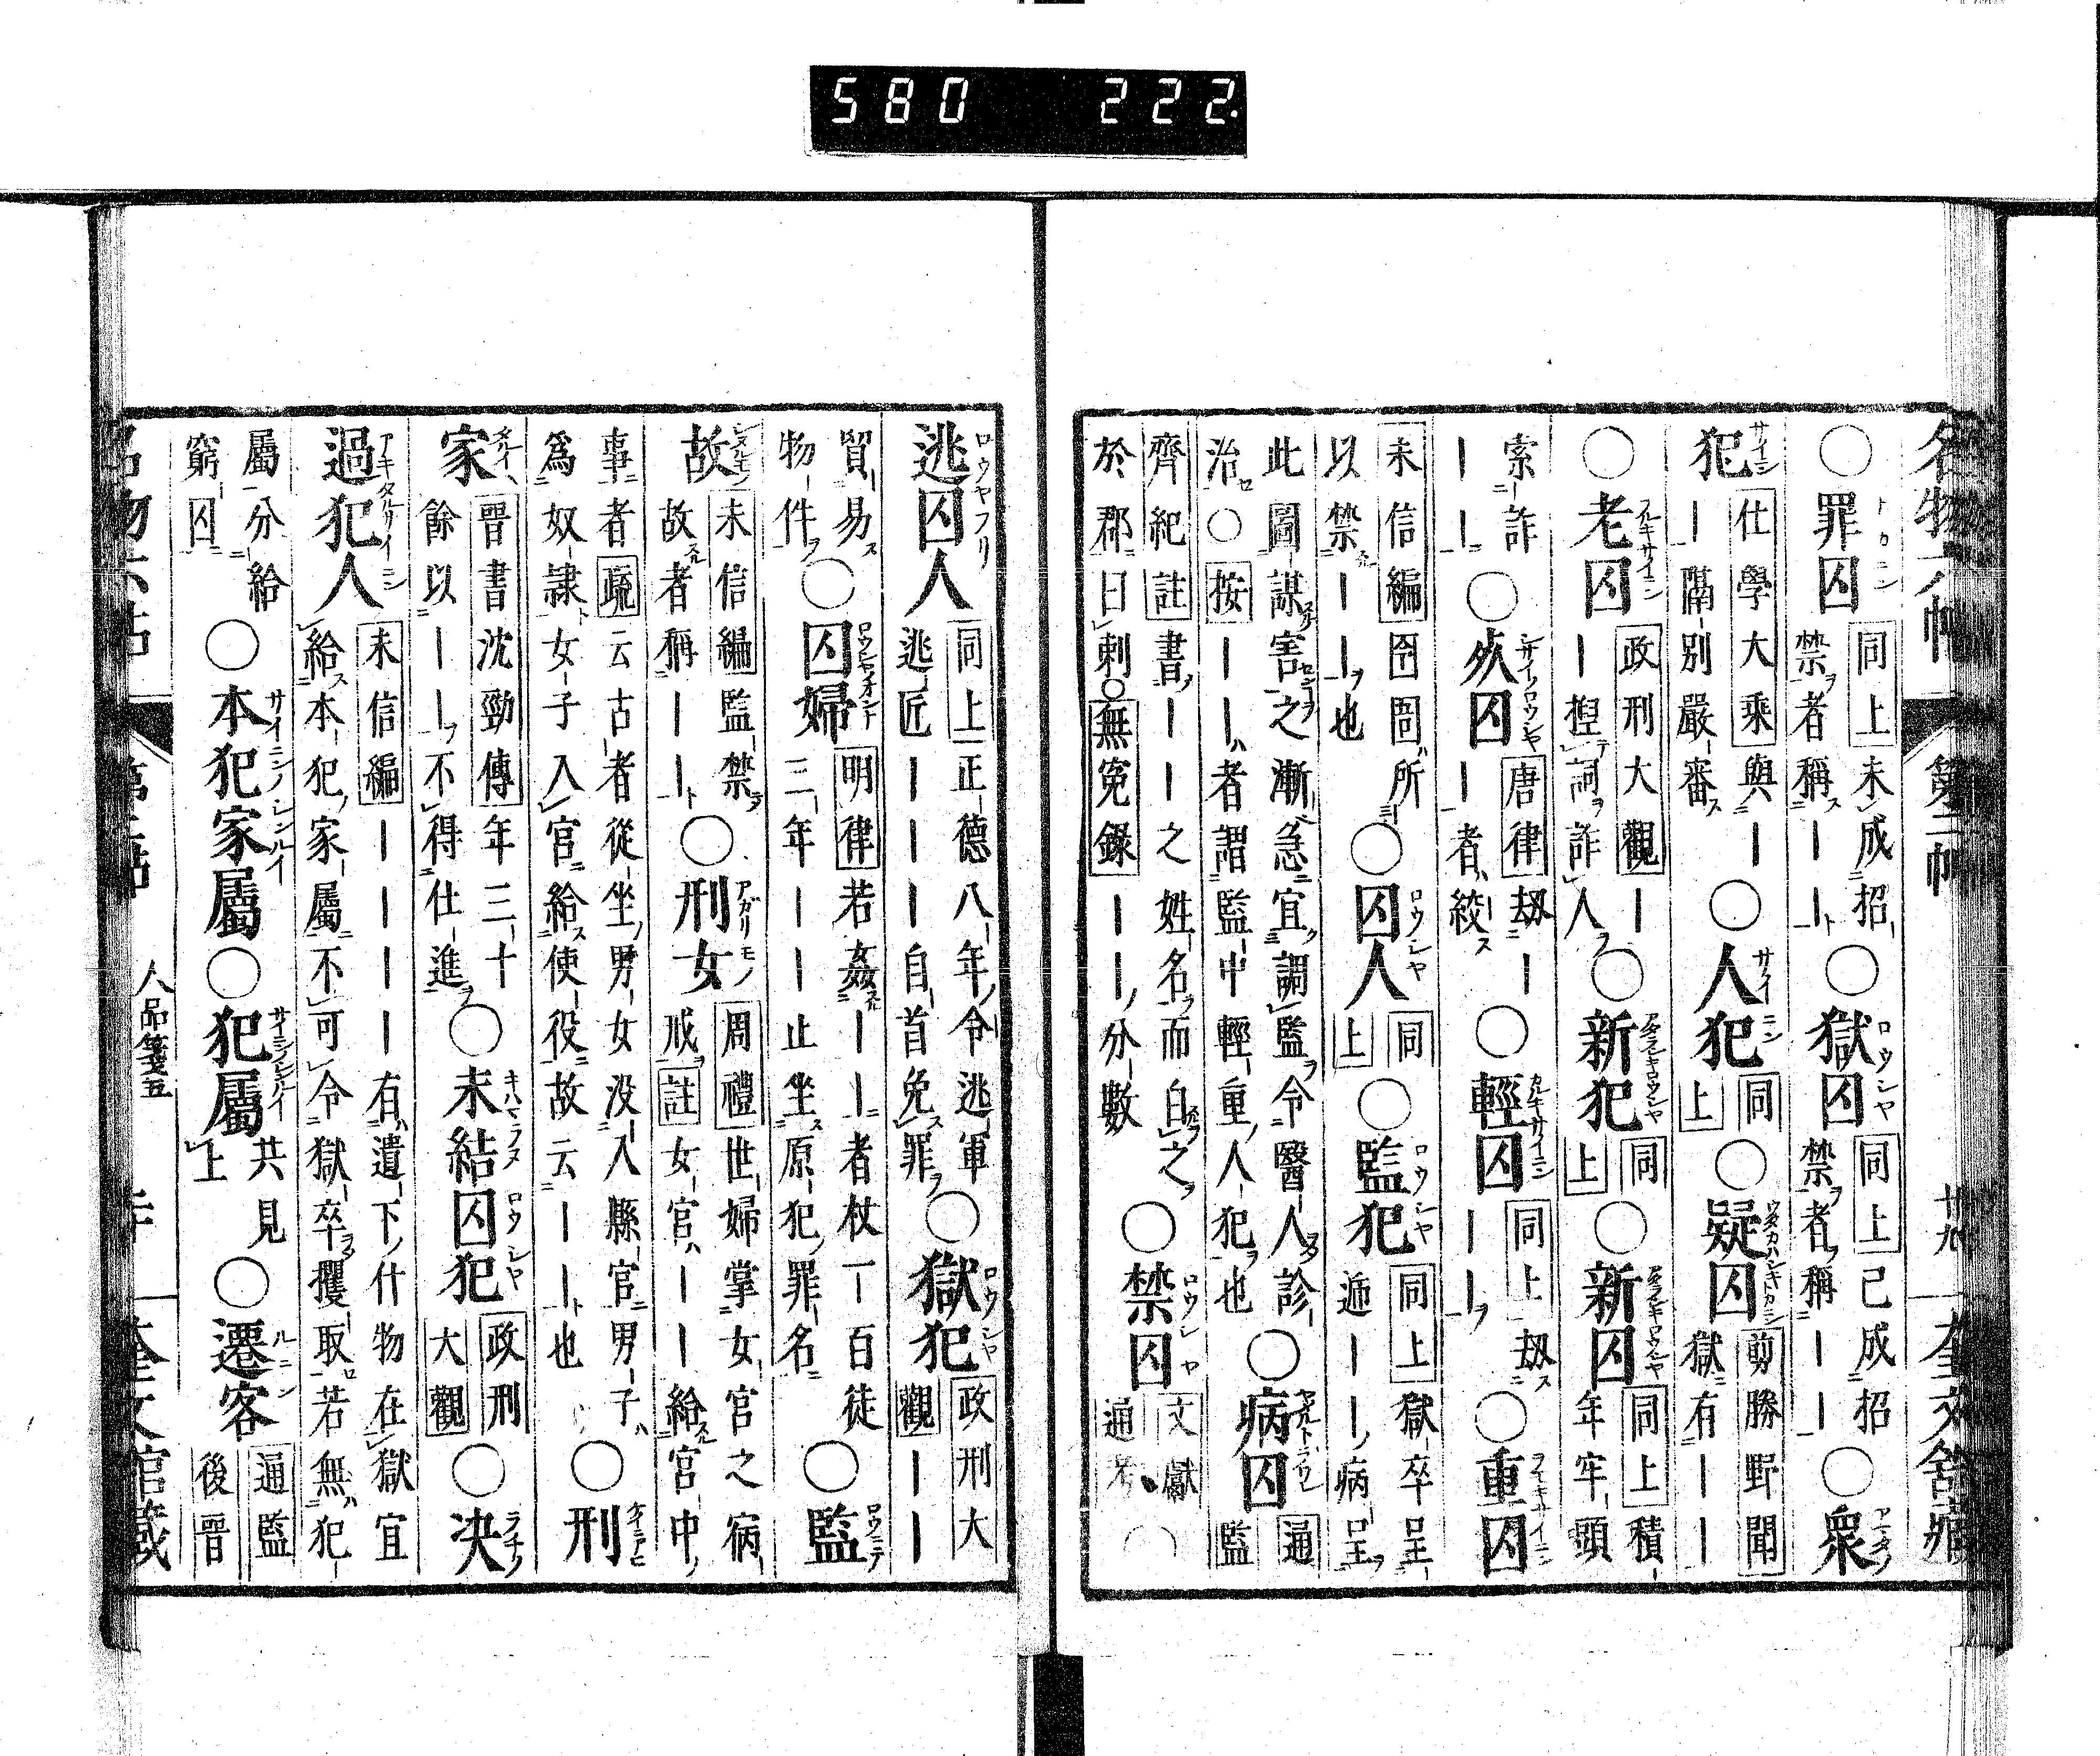 580 222.
名物六帖 第二帖 十九 奎文館藏
○罪囚 トガニン 同上 未成招 禁者稱｜｜ ○獄囚 ロウシヤ 同上 已成招 禁者稱｜｜ ○衆
犯 サイニン 仕學大乘 與｜ ｜隔別嚴審 ○人犯 サイニン 同上 ○疑囚 剪勝野聞 獄有｜｜
○老囚 フルキサイニン 政刑大觀 ｜ ｜揑詞詐人 ○新犯 同上 ○新囚 同上 積年牢頭
索詐｜｜ ○死囚 唐律 劫｜ ｜者絞 ○輕囚 カルキサイニン 同上 劫 ｜｜ ○重囚
未信編 囹圄所 以禁｜｜也 ○囚人 ロウシヤ 同上 ○監犯 ロウシヤ 同上 獄卒呈 逓｜｜病呈
此圖謀害之漸急宜調監令醫人診 治○按｜｜者謂監中輕重人犯也 ○病囚 通監
齊紀註 書｜｜之姓名而白之 於郡曰刺○無冤錄 ｜｜分數 ○禁囚 ロウシヤ 文獻通考 ○
逃囚人 ロウヤフリ 同上 正德八年令逃軍 逃匠｜｜｜自首免罪 ○獄犯 ロウシヤ 政刑大觀 ｜｜
貿易 物件 ○囚婦 明律 若姦｜｜者杖一百徒 三年｜｜止坐原犯罪名 ○監
故 未信編 監禁 故者稱｜｜ ○刑女 アガリモノ 周禮 世婦掌女官之病 戒註 女官｜｜給宮中
事者疏云古者從坐男女没入縣官男子 爲奴隷女子入官給使役故云｜｜也 ○刑
家 晉書沈勁傳 年三十 餘以｜｜不得仕進 ○未結囚犯 政刑大觀 ○决
過犯人 未信編 ｜｜｜有遺下什物在獄宜 給本犯家屬不可令獄卒攫取若無犯
屬分給 窮囚 ○本犯家屬 ○犯屬 共見上 ○遷客 ルニン 通監後晉
人品箋五